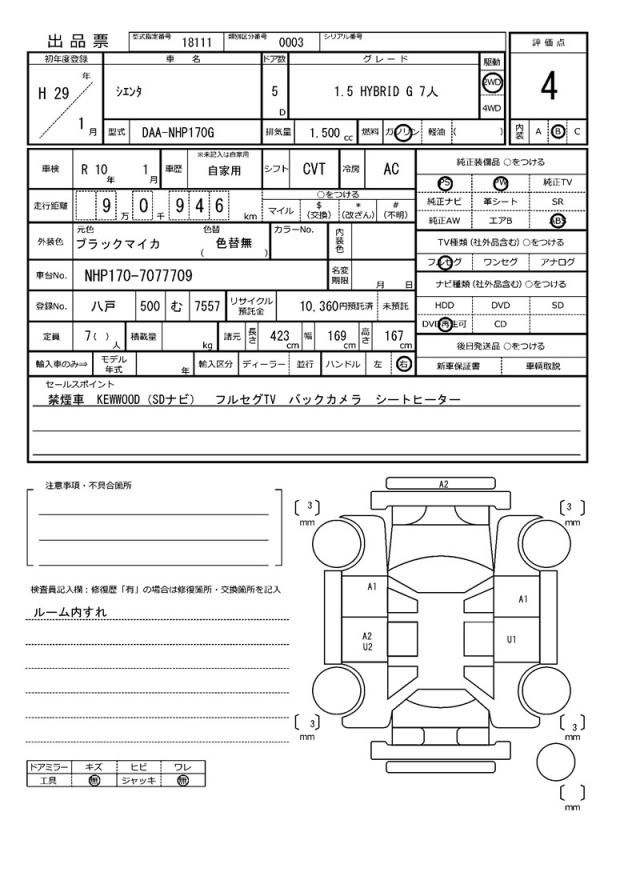 出品票
型式指定番号 18111 類別区分番号 0003 シリアル番号
評価点
4
内装 A B C
初年度登録 車名 ドア数 グレード 駆動
H 29 年 1 月
シエンタ
5 D
1.5 HYBRID G 7人
2WD
4WD
型式 DAA-NHP170G 排気量 1.500 cc 燃料 ガソリン 軽油 ( )
車検 R 10 年 1 月 車歴 ※未記入は自家用 自家用 シフト CVT 冷房 AC
走行距離 9 万 0 千 9 4 6 km
○をつける
マイル $ (交換) * (改ざん) # (不明)
外装色 元色 ブラックマイカ 色替 ( 色替無 ) カラーNo. 内装色
車台No. NHP170-7077709 名変期限 月 日
登録No. 八戸 500 む 7557 リサイクル預託金 10,360円預託済 未預託
定員 7( ) 人 積載量 kg 諸元 長さ 423 cm 幅 169 cm 高さ 167 cm
輸入車のみ⇒ モデル年式 年 輸入区分 ディーラー 並行 ハンドル 左 右
純正装備品 ○をつける
PS PW 純正TV
純正ナビ 革シート SR
純正AW エアB ABS
TV種類 (社外品含む) ○をつける
フルセグ ワンセグ アナログ
ナビ種類 (社外品含む) ○をつける
HDD DVD SD
DVD再生可 CD
後日発送品 ○をつける
新車保証書 車輌取説
セールスポイント
禁煙車 KEWWOOD (SDナビ) フルセグTV バックカメラ シートヒーター
注意事項・不具合箇所
検査員記入欄：修復歴「有」の場合は修復箇所・交換箇所を記入
ルーム内すれ
ドアミラー キズ ヒビ ワレ
工具 無 ジャッキ 無
A2
3 mm
3 mm
A1
A1
A2
U2
U1
3 mm
3 mm
mm